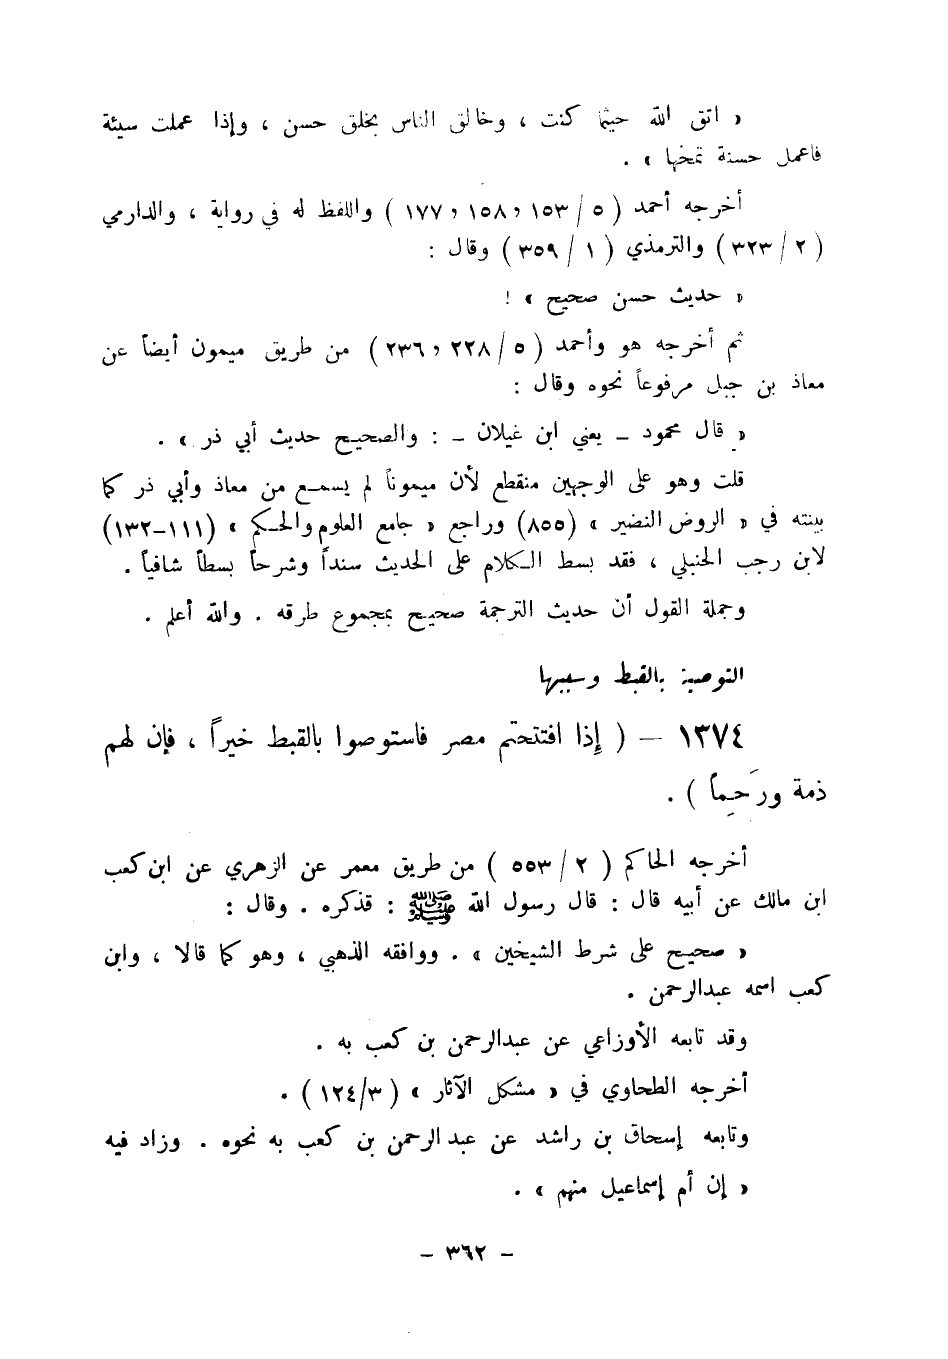 « اتق الله حيثما كنت ، وخالق الناس بخلق حسن ، وإذا عملت سيئة
فاعمل حسنة تمحها » .
أخرجه أحمد ( ٥ / ١٥٣ ، ١٥٨ ، ١٧٧ ) واللفظ له في رواية ، والدارمي
( ٢ / ٣٢٣ ) والترمذي ( ١ / ٣٥٩ ) وقال :
« حديث حسن صحيح » !
ثم أخرجه هو وأحمد ( ٥ / ٢٢٨ ، ٢٣٦ ) من طريق ميمون أيضاً عن
معاذ بن جبل مرفوعاً نحوه وقال :
« قال محمود – يعني ابن غيلان – : والصحيح حديث أبي ذر » .
قلت وهو على الوجهين منقطع لأن ميموناً لم يسمع من معاذ وأبي ذر كما
بينته في « الروض النضير » (٨٥٥) وراجع « جامع العلوم والحكم » (١١١–١٣٢)
لابن رجب الحنبلي ، فقد بسط الكلام على الحديث سنداً وشرحاً بسطاً شافياً .
وجملة القول أن حديث الترجمة صحيح بمجموع طرقه . والله أعلم .
التوصية بالقبط وسببها
١٣٧٤ – ( إِذا افتتحتم مصر فاستوصوا بالقبط خيراً ، فإن لهم
ذمة ورَحِماً ) .
أخرجه الحاكم ( ٢ / ٥٥٣ ) من طريق معمر عن الزهري عن ابن كعب
ابن مالك عن أبيه قال : قال رسول الله ﷺ : فذكره . وقال :
« صحيح على شرط الشيخين » . ووافقه الذهبي ، وهو كما قالا ، وابن
كعب اسمه عبدالرحمن .
وقد تابعه الأوزاعي عن عبدالرحمن بن كعب به .
أخرجه الطحاوي في « مشكل الآثار » ( ١٢٤/٣ ) .
وتابعه إسحاق بن راشد عن عبد الرحمن بن كعب به نحوه . وزاد فيه
« إن أم إسماعيل منهم » .
– ٣٦٢ –